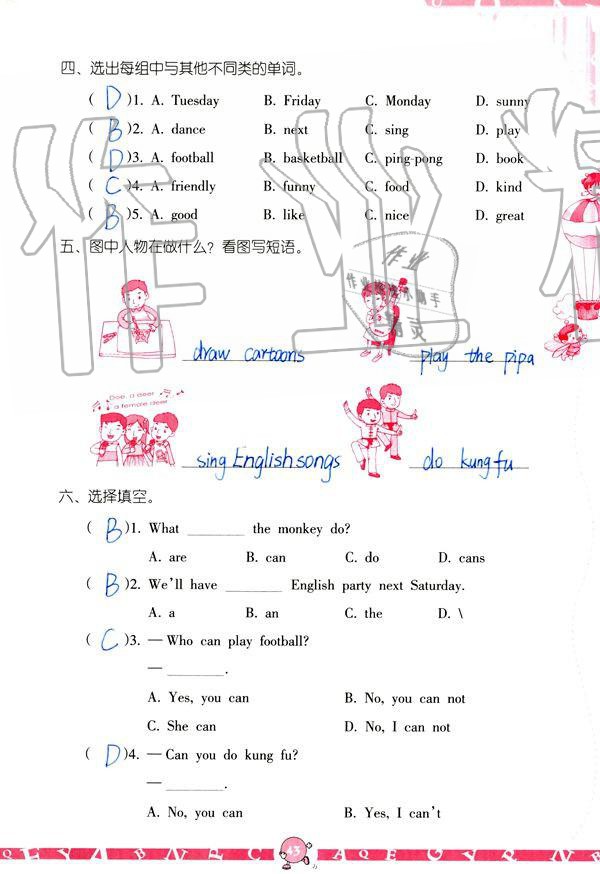 四、选出每组中与其他不同类的单词。
( D )1. A. Tuesday B. Friday C. Monday D. sunny
( B )2. A. dance B. next C. sing D. play
( D )3. A. football B. basketball C. ping-pong D. book
( C )4. A. friendly B. funny C. food D. kind
( B )5. A. good B. like C. nice D. great
五、图中人物在做什么？看图写短语。
draw cartoons
play the pipa
Doe, a deer
a female deer
sing English songs
do kung fu
六、选择填空。
( B )1. What ________ the monkey do?
A. are B. can C. do D. cans
( B )2. We'll have ________ English party next Saturday.
A. a B. an C. the D. \
( C )3. — Who can play football?
— ________.
A. Yes, you can B. No, you can not
C. She can D. No, I can not
( D )4. — Can you do kung fu?
— ________.
A. No, you can B. Yes, I can't
43
Q L Y A B N P C A Q E G Y R N E
作业
作业